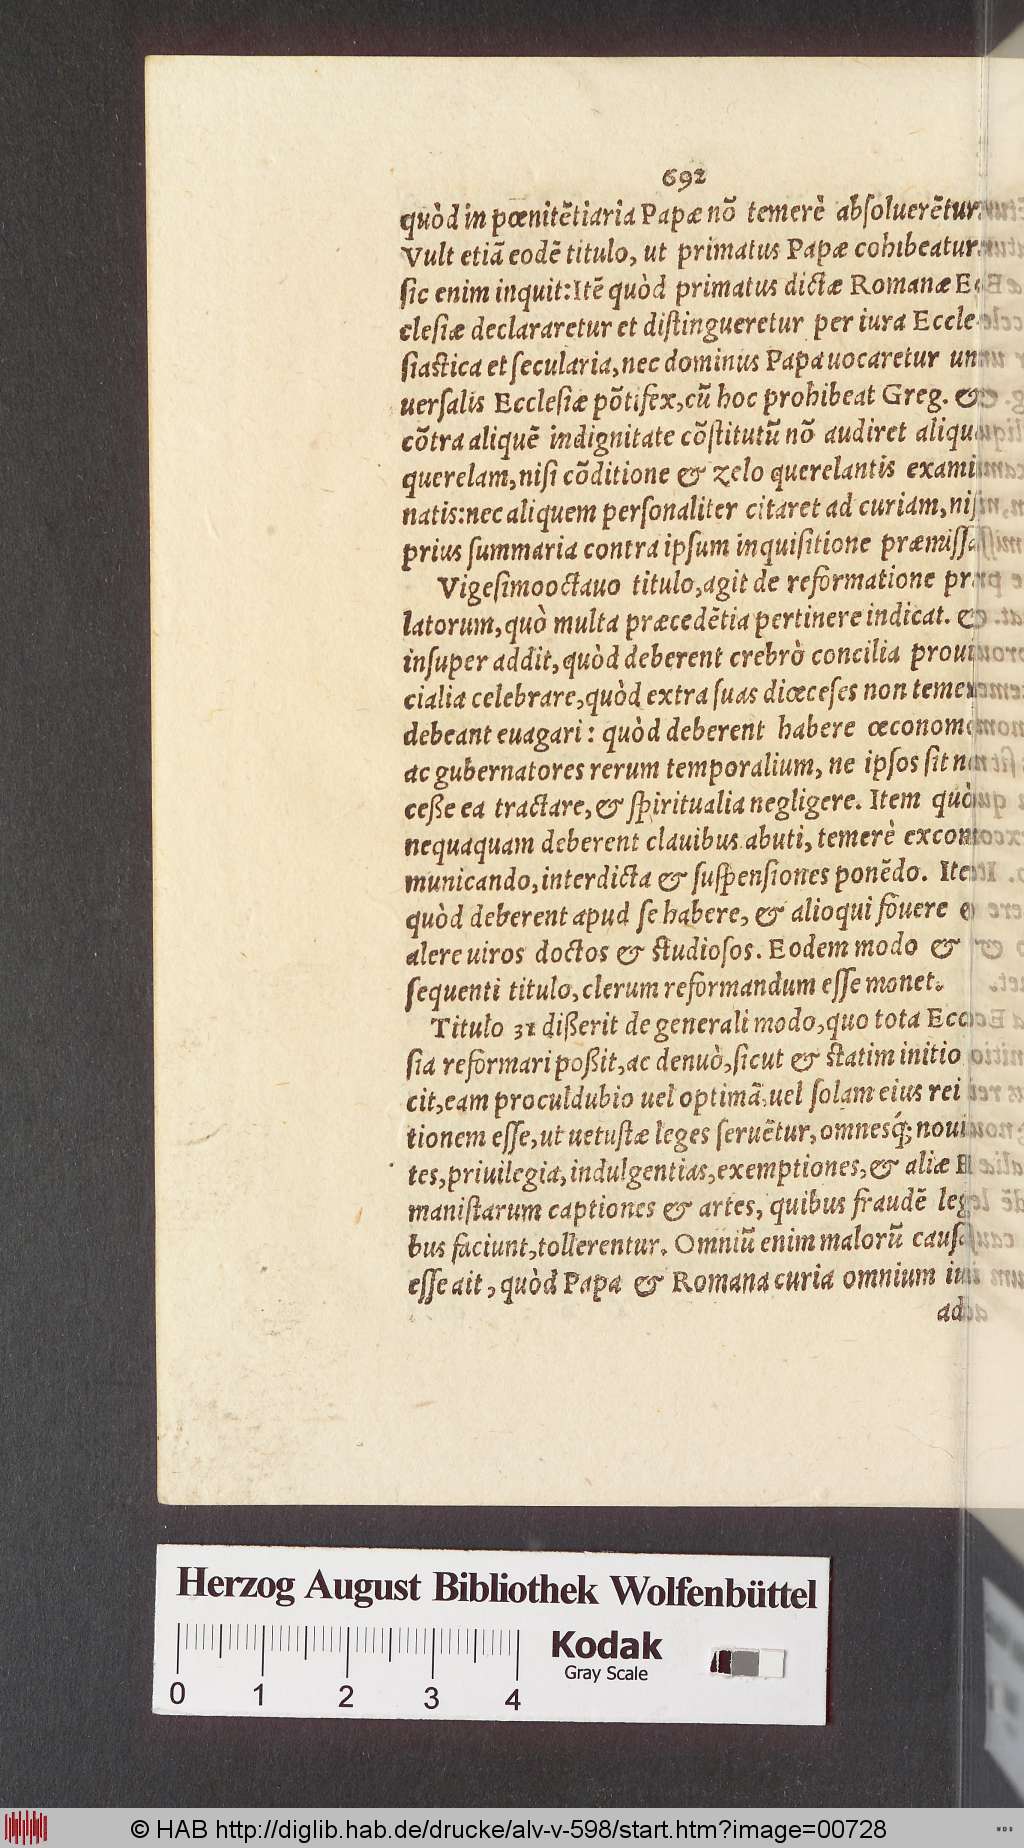 692
quòd in pœnitẽtiaria Papæ nõ temerè absoluerẽtur.
Vult etiã eodẽ titulo, ut primatus Papæ cohibeatur.
sic enim inquit: Itẽ quòd primatus dictæ Romanæ Ec
clesiæ declararetur et distingueretur per iura Eccle
siastica et secularia, nec dominus Papa uocaretur uni
uersalis Ecclesiæ põtifex, cũ hoc prohibeat Greg. &
cõtra aliquẽ in dignitate cõstitutũ nõ audiret aliquam
querelam, nisi cõditione & zelo querelantis exami
natis: nec aliquem personaliter citaret ad curiam, nisi
prius summaria contra ipsum inquisitione præmissa.
Vigesimooctauo titulo, agit de reformatione præ
latorum, quò multa præcedẽtia pertinere indicat. &
insuper addit, quòd deberent crebrò concilia prouin
cialia celebrare, quòd extra suas diœceses non temere
debeant euagari: quòd deberent habere œconomos
ac gubernatores rerum temporalium, ne ipsos sit ne
ceße ea tractare, & spiritualia negligere. Item quòd
nequaquam deberent clauibus abuti, temerè excom
municando, interdicta & suspensiones ponẽdo. Item
quòd deberent apud se habere, & alioqui fouere
alere uiros doctos & studiosos. Eodem modo &
sequenti titulo, clerum reformandum esse monet.
Titulo 31 dißerit de generali modo, quo tota Eccle
sia reformari poßit, ac denuò, sicut & statim initio
cit, eam proculdubio uel optimã, uel solam eius rei
tionem esse, ut uetustæ leges seruẽtur, omnesq́; noui
tes, priuilegia, indulgentias, exemptiones, & aliæ
manistarum captiones & artes, quibus fraudẽ legi
bus faciunt, tollerentur. Omniũ enim malorũ causam
esse ait, quòd Papa & Romana curia omnium
ad
Herzog August Bibliothek Wolfenbüttel
Kodak
Gray Scale
0 1 2 3 4
© HAB http://diglib.hab.de/drucke/alv-v-598/start.htm?image=00728